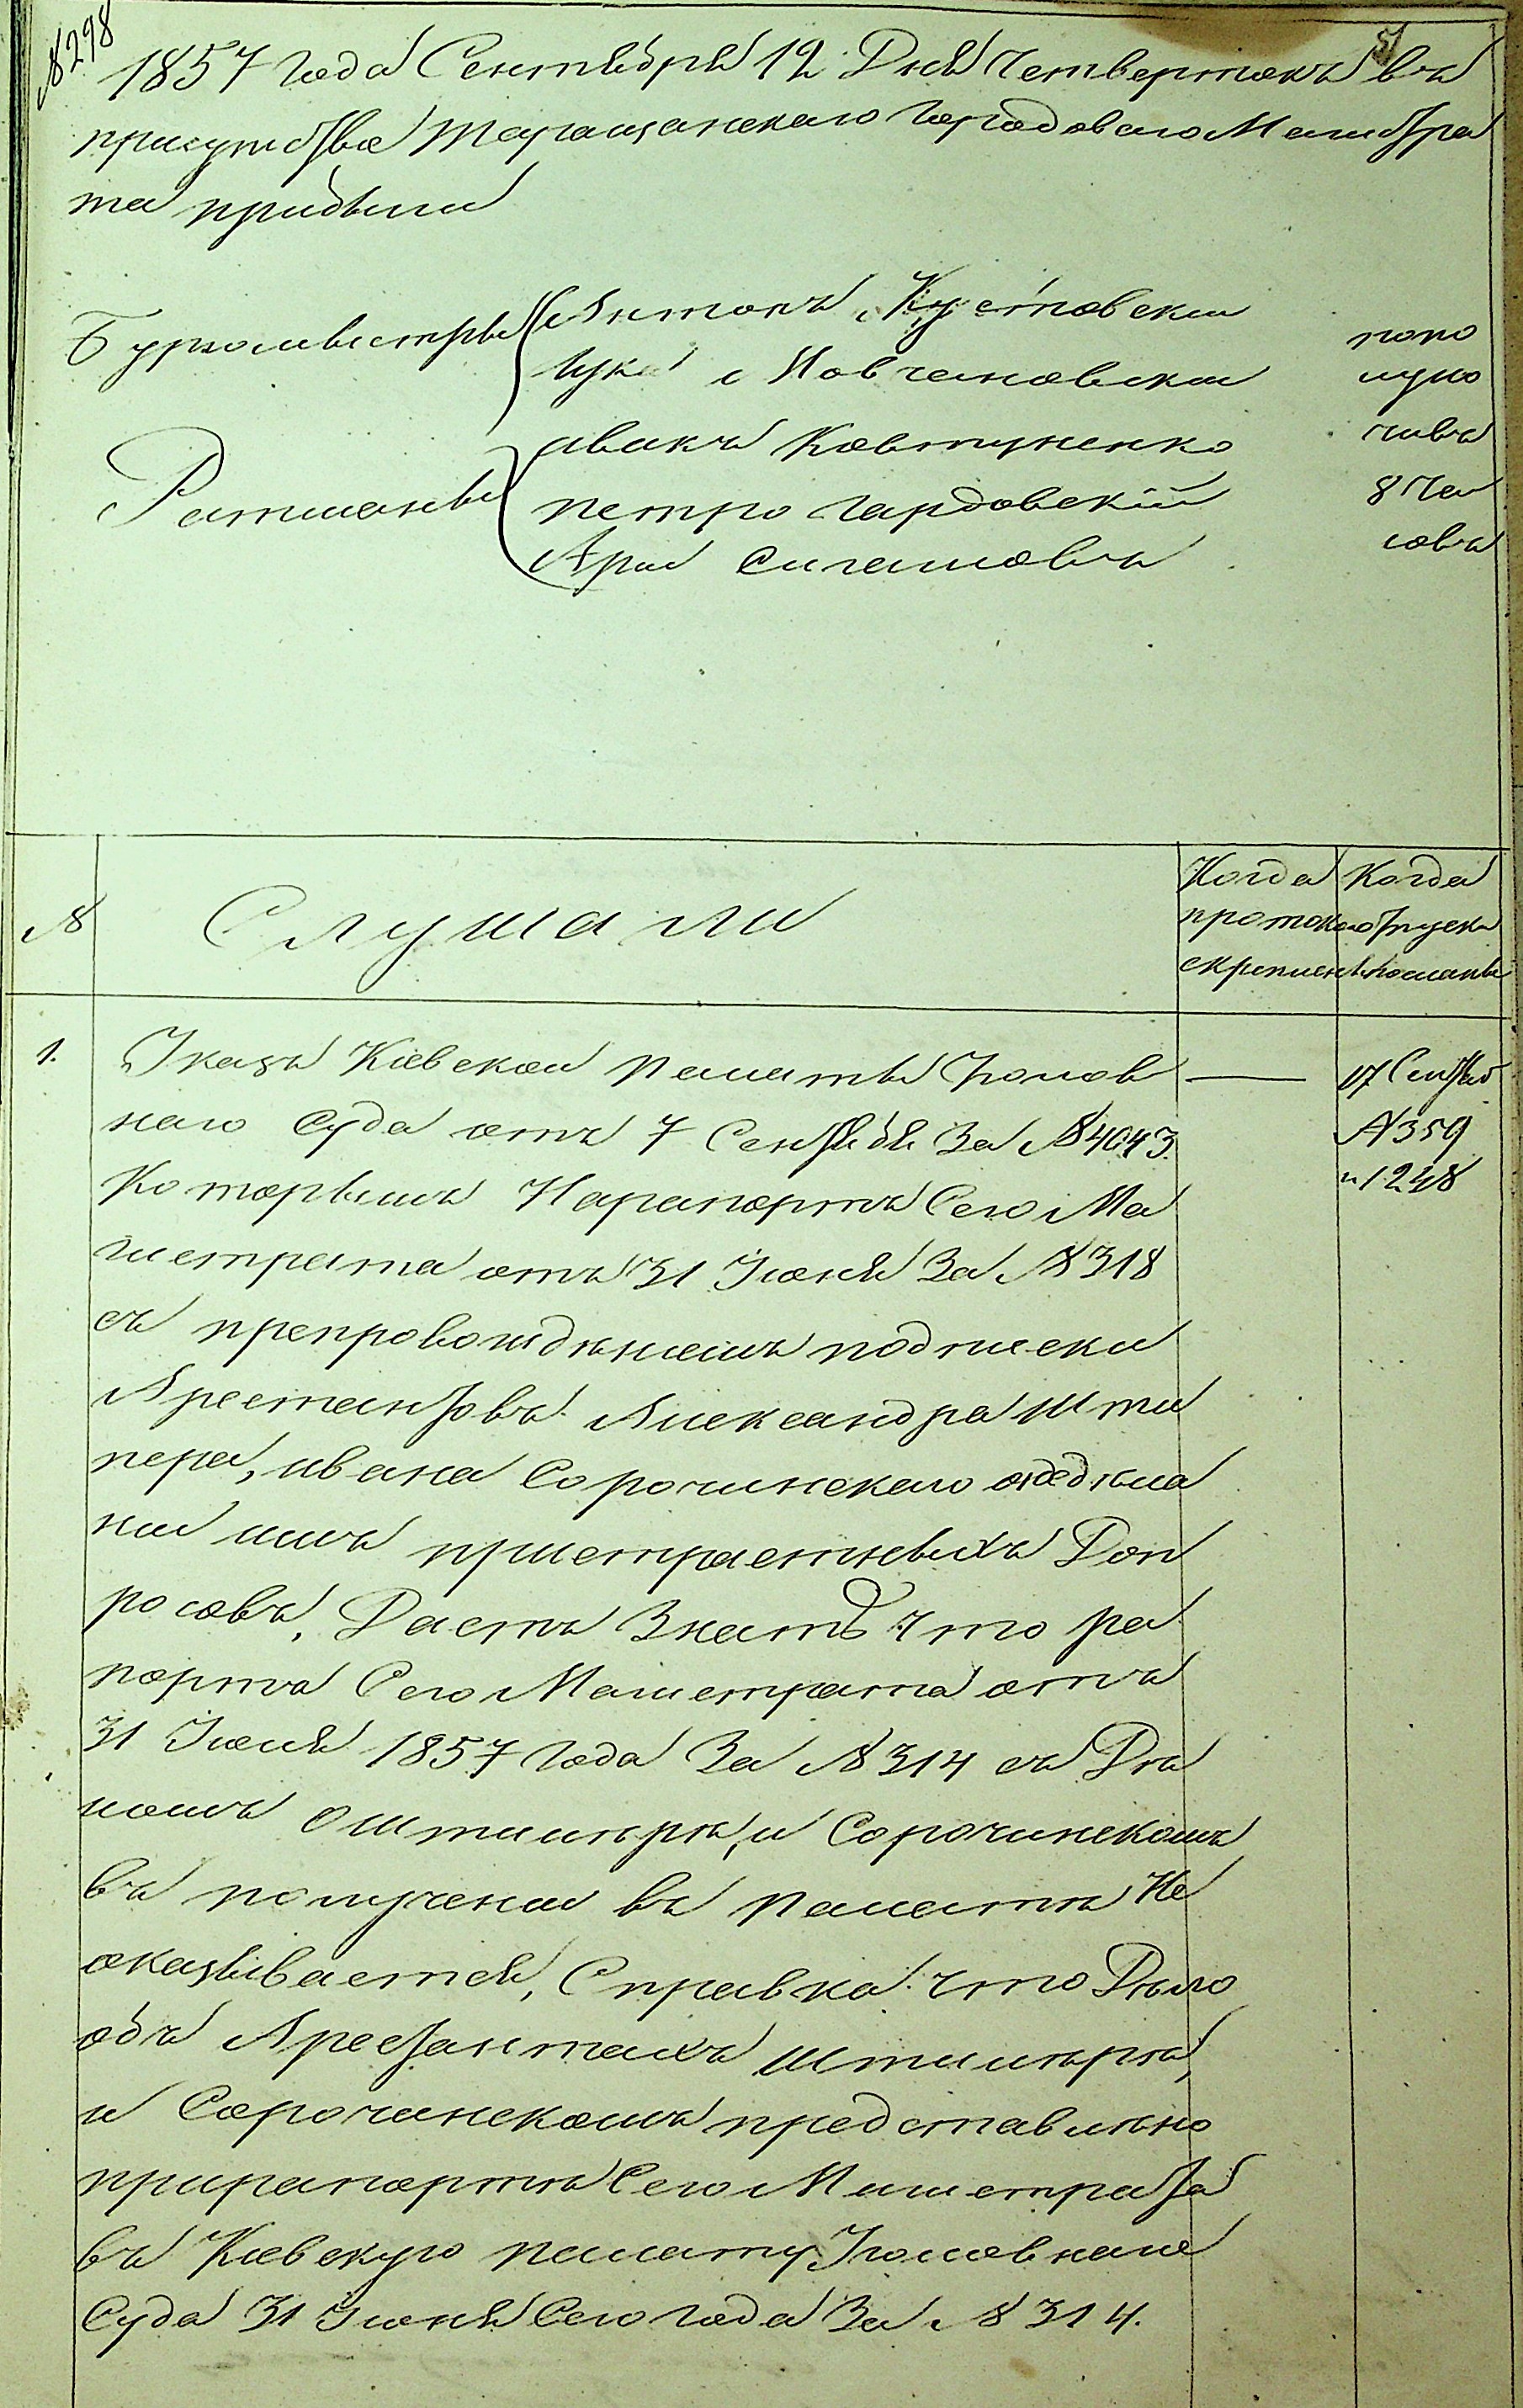 № 298
51
1857 года Сентября 12 Дня Четвертокъ въ
присутствіе Таращанскаго Городоваго Магистра
та прибыли
Бургомистры
Антонъ Кустовски
Лука Мовчановски
Ратманы
иванъ Ковтуненко
петро Гардовскій
попо
лудо
чивъ
8 Ча
совъ
№
Слушали
Когда
протокол
скрепленъ
Когда
отпуски
посланы
1.
Указъ Кіевскои Палаты Уголов
наго Суда отъ 7 Сентября За № 4043.
Которымъ Нарапортъ Сего Ма
гистрата отъ 31 Іюля За № 318
съ препровождѣнемъ подписки
Арестантовъ Александра Шти
пера, ивана Сорочинскаго онедѣла
ніи имъ пристрастныхъ Доп
росовъ, Даетъ Знать что ра
портъ Сего Магистрата отъ
31 Іюля 1857 года За № 314 съ Дѣ
ломъ о Штиперѣ, и Сорочинскомъ
въ получении въ Палатѣ Не
оказывается, Справка: что Дѣло
объ Арестантахъ Штиперѣ,
и Сорочинскомъ представлѣно
прирапортѣ Сего Магистрата
въ Киевскую палату Уголовнаго
Суда 31 Іюля Сего года За № 314.
17 Сентяб
№ 359
и 1248